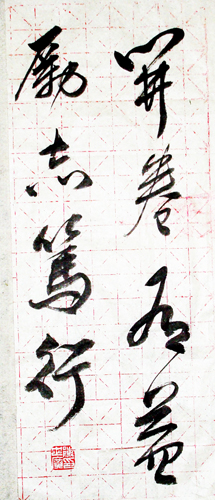 開卷有益
勵志篤行